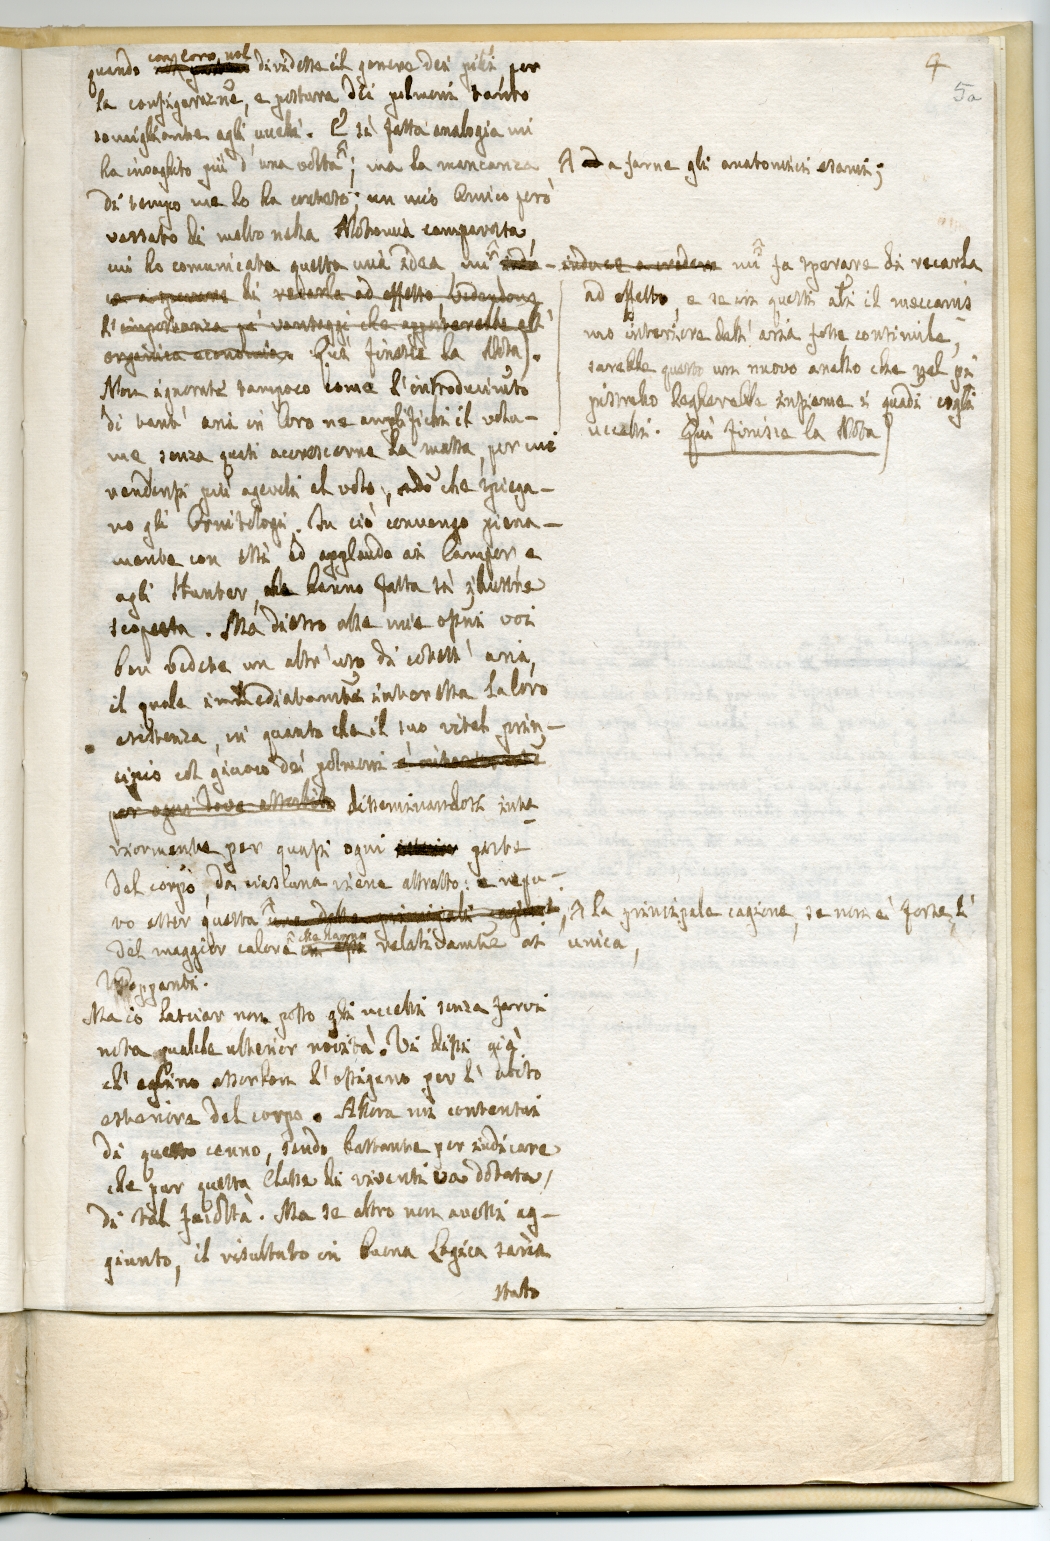 4
5a
quando con loro nol dividesse il genere dei pipi per
la configurazne, e postura dei polmoni tanto
somigliante agli uccelli. E sì fatta analogia mi
ha invaghito più d'una volta A; ma la mancanza
di tempo me lo ha conteso; un mio Amico però
versato di molto nella Notomia comparata
cui ho comunicata questa mia idea, mi indu-
ce a sperare di recarla ad effetto vedendone
l'importanza pe' vantaggi che apporterebbe all'
organica economia. Qui finisce la Nota).
Non ignorate tampoco come l'introducimto
di tant'aria in loro ne amplifichi il volu-
me, senza quasi accrescerne la massa, per cui
rendonsi più agevoli al volo, modo che spiega-
no gli Ornitologi. In ciò convengo piena-
mente con essi ed applaudo ai Camper e
agli Hunter, che hanno fatta sì illustre
scoperta. Ma dietro alle mie osni voi
ben vedete un altr'uso di cotest'aria,
il quale immediatamte interessa la loro
esistenza, in quanto che il suo vital prin-
cipio col giuoco dei polmoni
per ogni dove assorbito disseminandosi inte
riormente per quasi ogni parte
del corpo, da ciascuna viene attratto: e repu-
to esser questa una delle principali cagioni,
del maggior calore che hanno in essi relativamte ai
Ma io lasciar non posso gli uccelli senza farvi
nota qualche ulterior novità. Vi dissi già
ch'eglino assorbon l'ossigeno per l'abito
esteriore del corpo. Allora mi contentai
di questo cenno, sendo bastante per indicare
che pur questa Classe di viventi va dotata
di tal facoltà. Ma se altro non avessi ag-
giunto, il risultato in buona Logica saria
stato
A ad a farne gli anatomici esami;
induce a credere mi fa sperare di recarla
ad effetto, e se in questi altri il meccanis
mo interiore dell'aria fosse consimile,
sarebbe questo un nuovo anello che vel più
stretto legherebbe insieme i quadi cogli
uccelli. Qui finisce la Nota)
A la principale cagione, se non è forse l'
unica,